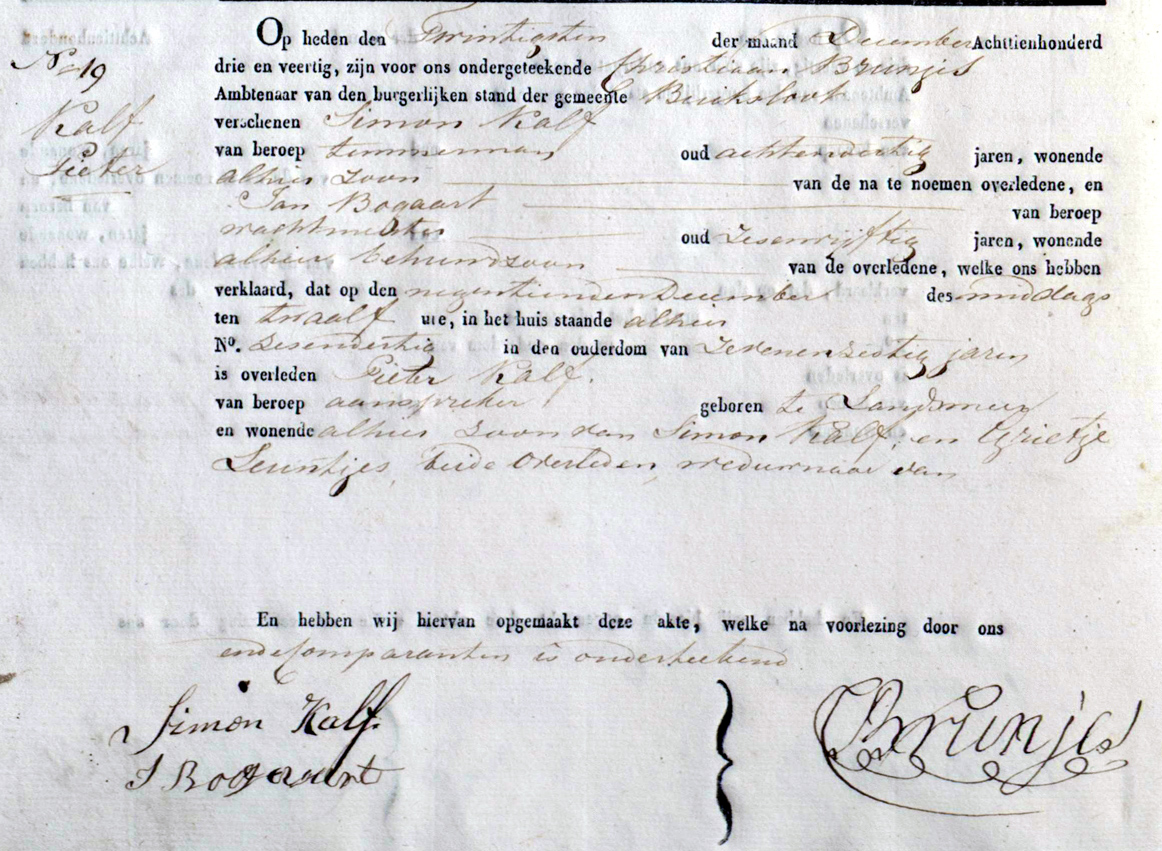 Op heden den Twintigsten der maand December Achttienhonderd
No 19
drie en veertig, zijn voor ons ondergeteekende Christiaan Brunjes
Ambtenaar van den burgerlijken stand der gemeente Buiksloot
Kalf
verschenen Simon Kalf
van beroep timmerman oud achtenveertig jaren, wonende
Pieter
alhier zoon van de na te noemen overledene, en
Jan Bogaart van beroep
nachtmeester oud zesenvyftig jaren, wonende
alhier behuwdzoon van de overledene, welke ons hebben
verklaard, dat op den negentienden December des middags
ten twaalf ure, in het huis staande alhier
No. zesendertig in den ouderdom van zevenenzestig jaren
is overleden Pieter Kalf.
van beroep aanspreker geboren te Landsmeer
en wonende alhier zoon van Simon Kalf, en Grietje
Leuntjes, beide overleden, weduwnaar van
En hebben wij hiervan opgemaakt deze akte, welke na voorlezing door ons
en de Comparanten is onderteekend
Simon Kalf.
J Bogaart
CBrunjes